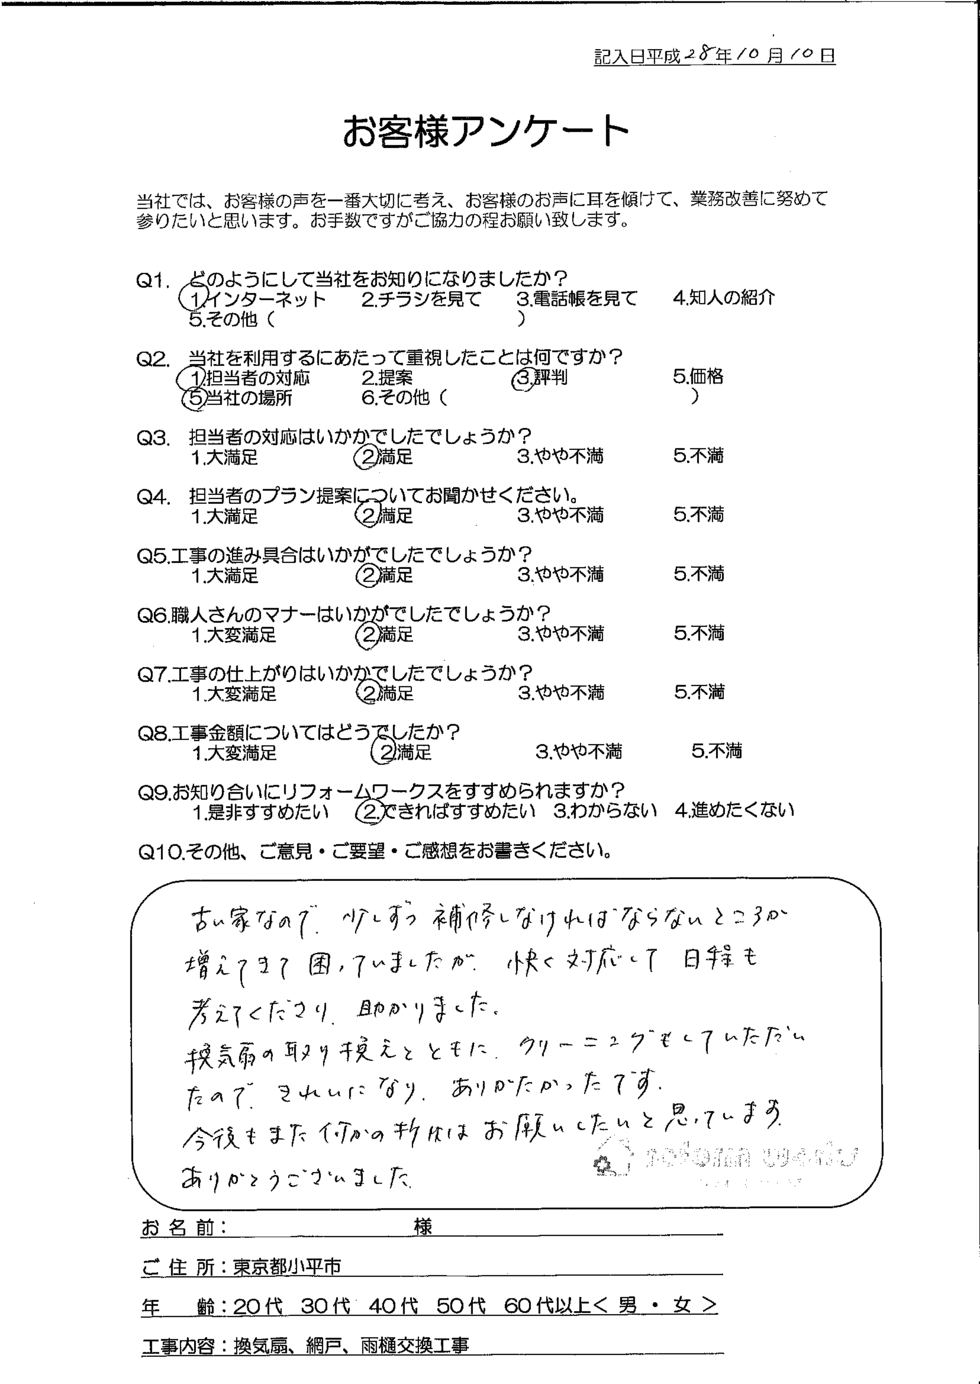 記入日平成28年10月10日
お客様アンケート
当社では、お客様の声を一番大切に考え、お客様のお声に耳を傾けて、業務改善に努めて
参りたいと思います。お手数ですがご協力の程お願い致します。
Q1. どのようにして当社をお知りになりましたか?
1.インターネット 2.チラシを見て 3.電話帳を見て 4.知人の紹介
5.その他 ( )
Q2. 当社を利用するにあたって重視したことは何ですか?
1.担当者の対応 2.提案 3.評判 5.価格
5.当社の場所 6.その他 ( )
Q3. 担当者の対応はいかかでしたでしょうか?
1.大満足 2.満足 3.やや不満 5.不満
Q4. 担当者のプラン提案についてお聞かせください。
1.大満足 2.満足 3.やや不満 5.不満
Q5.工事の進み具合はいかがでしたでしょうか?
1.大満足 2.満足 3.やや不満 5.不満
Q6.職人さんのマナーはいかがでしたでしょうか?
1.大変満足 2.満足 3.やや不満 5.不満
Q7.工事の仕上がりはいかかでしたでしょうか?
1.大変満足 2.満足 3.やや不満 5.不満
Q8.工事金額についてはどうでしたか?
1.大変満足 2.満足 3.やや不満 5.不満
Q9.お知り合いにリフォームワークスをすすめられますか?
1.是非すすめたい 2.できればすすめたい 3.わからない 4.進めたくない
Q10.その他、ご意見・ご要望・ご感想をお書きください。
古い家なので、少しずつ補修しなければならないところが
増えてきて困っていましたが、快く対応して日程も
考えてくださり、助かりました。
換気扇の取り換えとともに、クリーニングもしていただい
たので、きれいになり、ありがたかったです。
今後もまた何かの折にはお願いしたいと思っています。
ありがとうございました。
お 名 前: 様
ご 住 所:東京都小平市
年 齢:20代 30代 40代 50代 60代以上< 男 ・ 女 >
工事内容:換気扇、網戸、雨樋交換工事